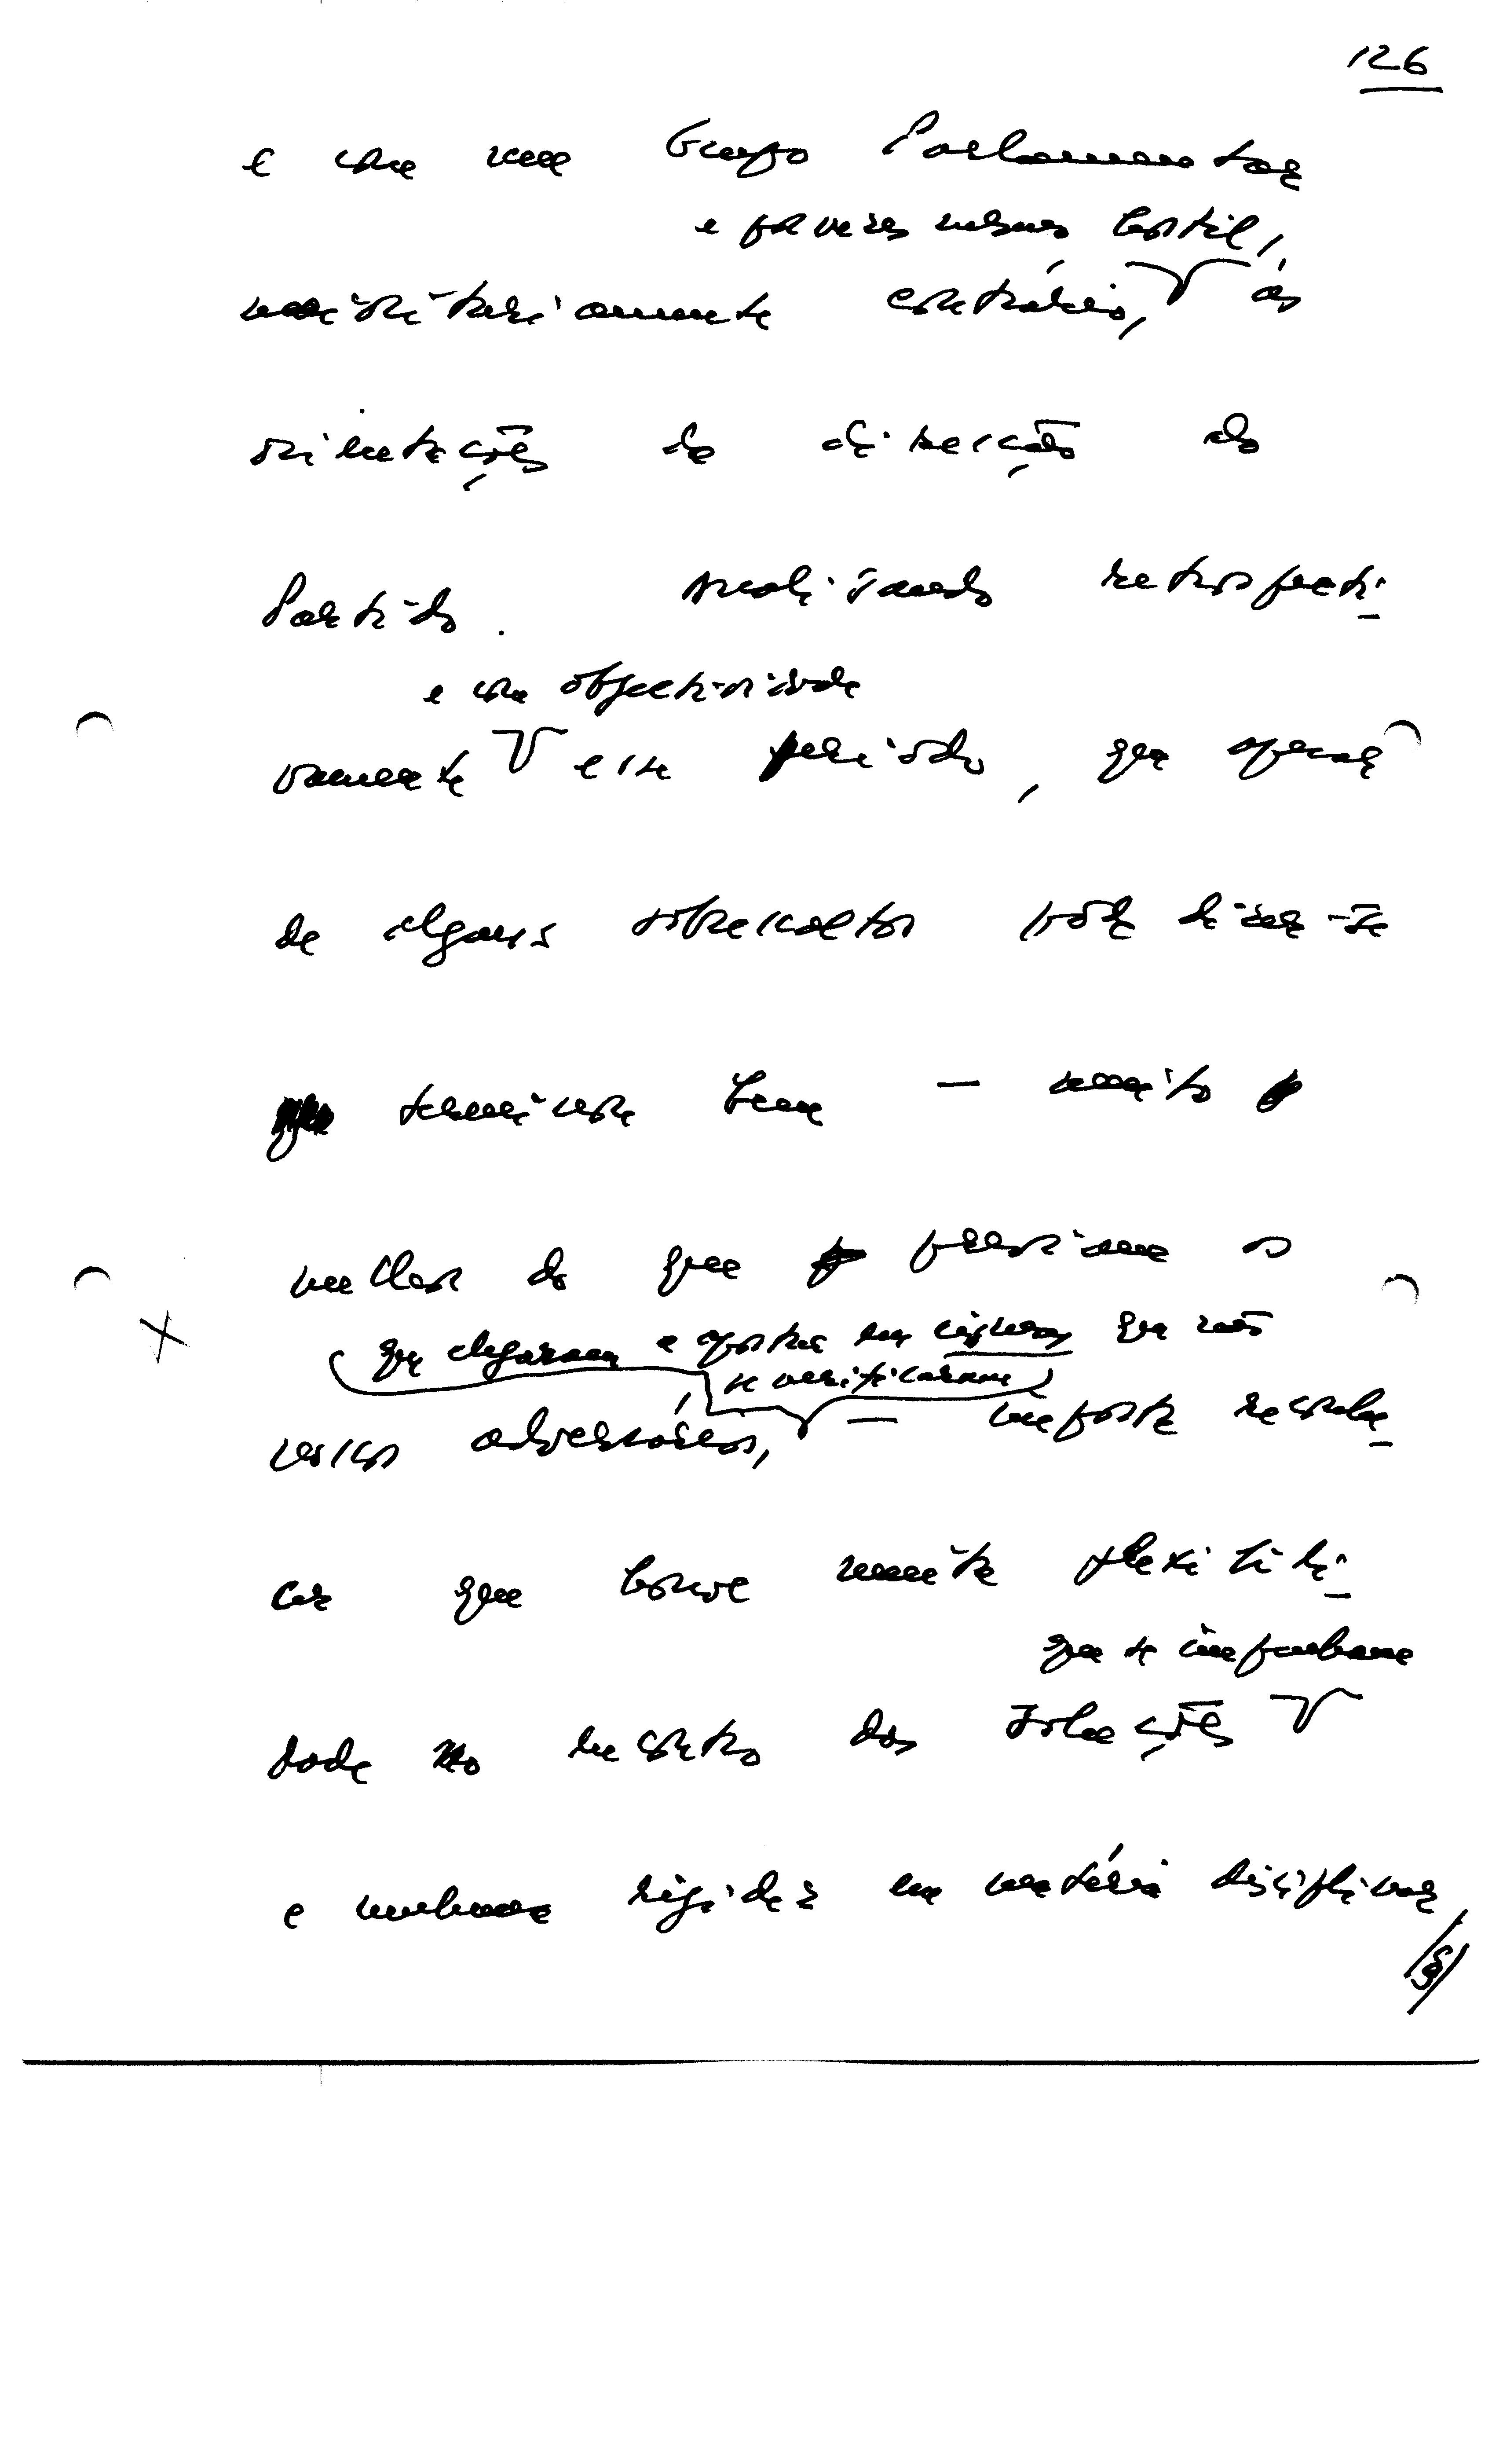 126
e com um Grupo Parlamentar
e por vezes mesmo hostil,
maioritariamente contrário, às
orientações da direcção do
Partido. Analisando retrospecti-
e com objectividade
vamente este período, que apesar
de alguns sobressaltos pode dizer-se
terminou bem — muito
melhor do que previam os
que chegaram a apostar em cisões que não
se verificaram
nossos adversários, — importa reconhe-
cer que houve muita flexibili-
que se impunham
dade no encontro das soluções
e nenhuma rigidez em matéria disciplinar